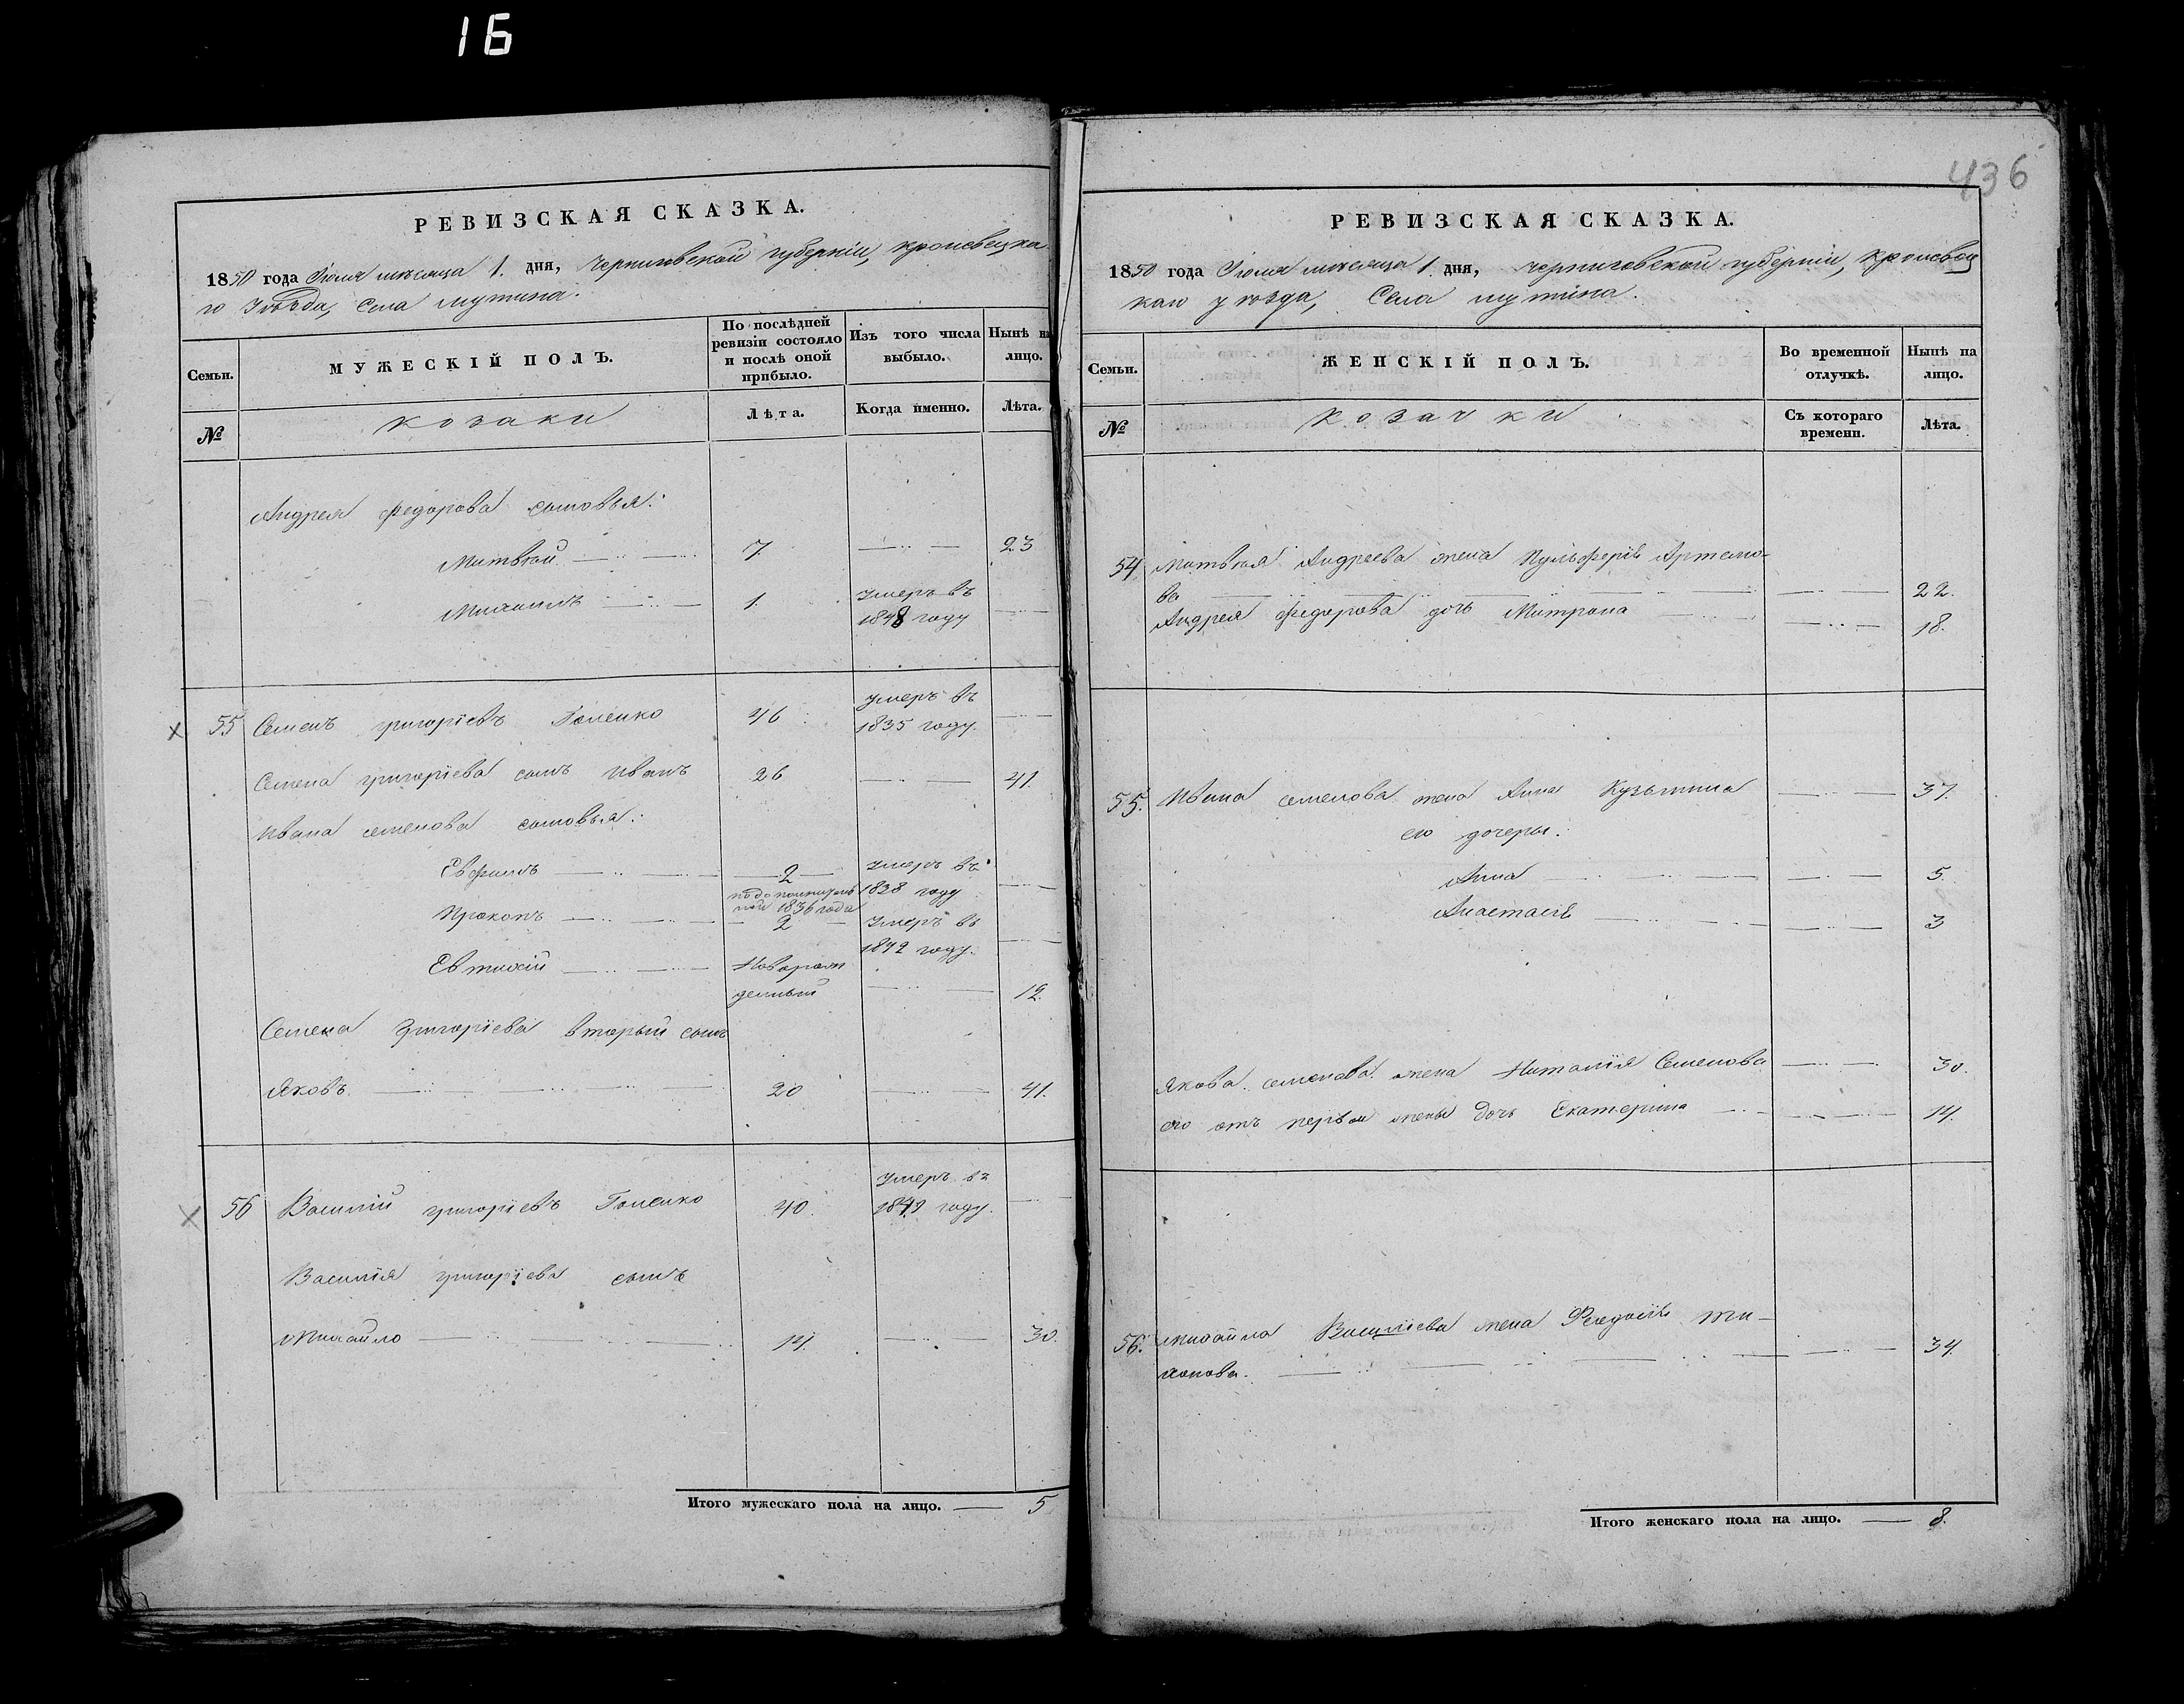 16
436
РЕВИЗСКАЯ СКАЗКА.
1850 года Іюля мѣсяца 1. дня, Черниговской губерніи, кролевецка
го Уѣзда, Села мутина.
Семьи.
МУЖЕСКІЙ ПОЛЪ.
По послѣдней
ревизіи состояло
и послѣ оной
прибыло.
Изъ того числа
выбыло.
Нынѣ на
лицо.
№
козаки
Лѣта.
Когда именно.
Лѣта.
Андрея Федорова сыновья:
Матвѣй 7 23
Михаилъ 1. Умеръ въ
1848 году
55 Семенъ григоріевъ 46 Умеръ въ
1835 году.
Семена григоріева сынъ Иванъ 26 41.
Ивана семенова сыновья:
Евфимъ 2 Умеръ въ
1838 году
1836 года
Прокопъ 2 Умеръ въ
1842 году.
Евтихій Новорож
денный 12.
Семена Григоріева вторый сынъ
Яковъ 20 41.
56 Василій григоріевъ 40. Умеръ въ
1849 году.
Василія григоріева сынъ
Михайло 14. 30.
Итого мужескаго пола на лицо. 5
РЕВИЗСКАЯ СКАЗКА.
1850 года Іюля мѣсяца 1. дня, черниговской губерніи, Кролевец
каго уѣзда, Села мутина.
Семьи.
ЖЕНСКІЙ ПОЛЪ.
Во временной
отлучкѣ.
Нынѣ на
лицо.
№
козачки
Съ котораго
времени.
Лѣта.
54 Матвѣя Андреева жена Пульферія Артемо-
ва 22.
Андрея Федорова дочь Матрона 18.
55. Ивана семенова жена Анна Кузьмина 37.
его дочеры:
Анна 5.
Анастасія 3
Якова семенова жена Наталія Семенова 30.
его отъ первой жены дочь Екатерина 14.
56. Михайла Василіева жена Феодосія Ти-
хонова. 34.
Итого женскаго пола на лицо. 8.